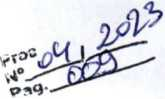 Proc
Nº 04, 2023
Pag. 009